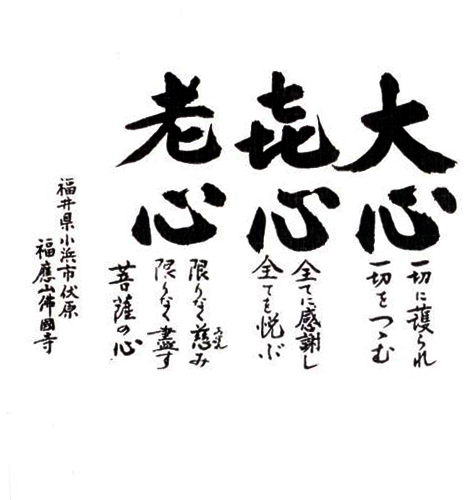 大心
一切に護られ
一切をつゝむ
㐂心
全てに感謝し
全てを悦ぶ
老心
限りなく慈み
限りなく盡す
菩薩の心
福井県小浜市伏原
福應山佛國寺